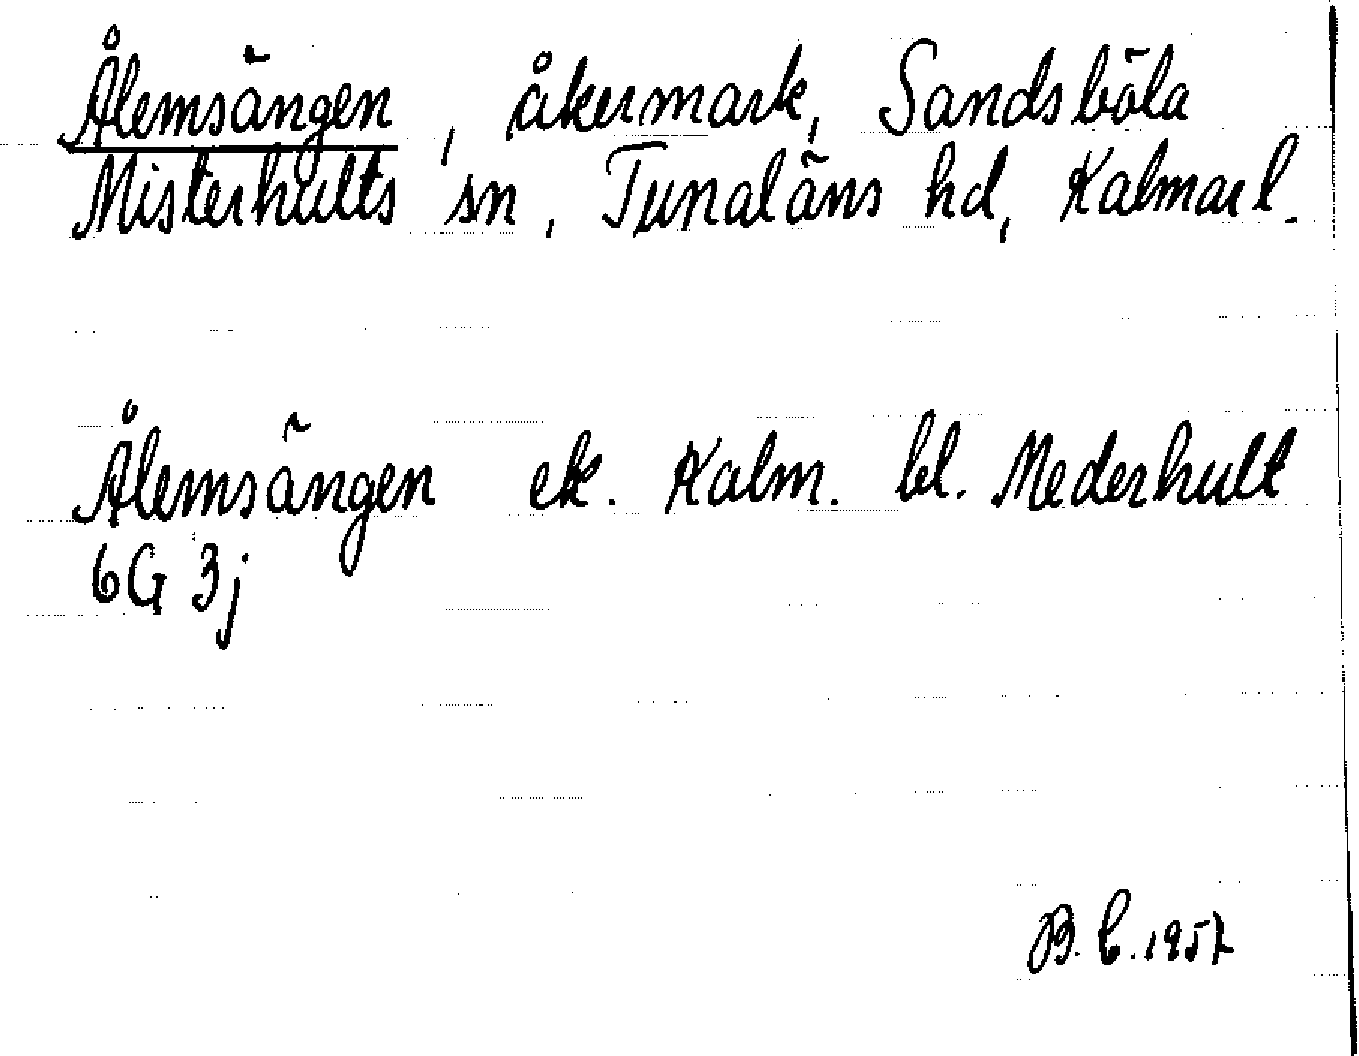 Ålemsängen, åkermark, Sandsböla
Misterhults sn, Tunaläns hd, Kalmar l.
Ålemsängen ek. Kalm. bl. Mederhult
6G 3j
B. C. 1957